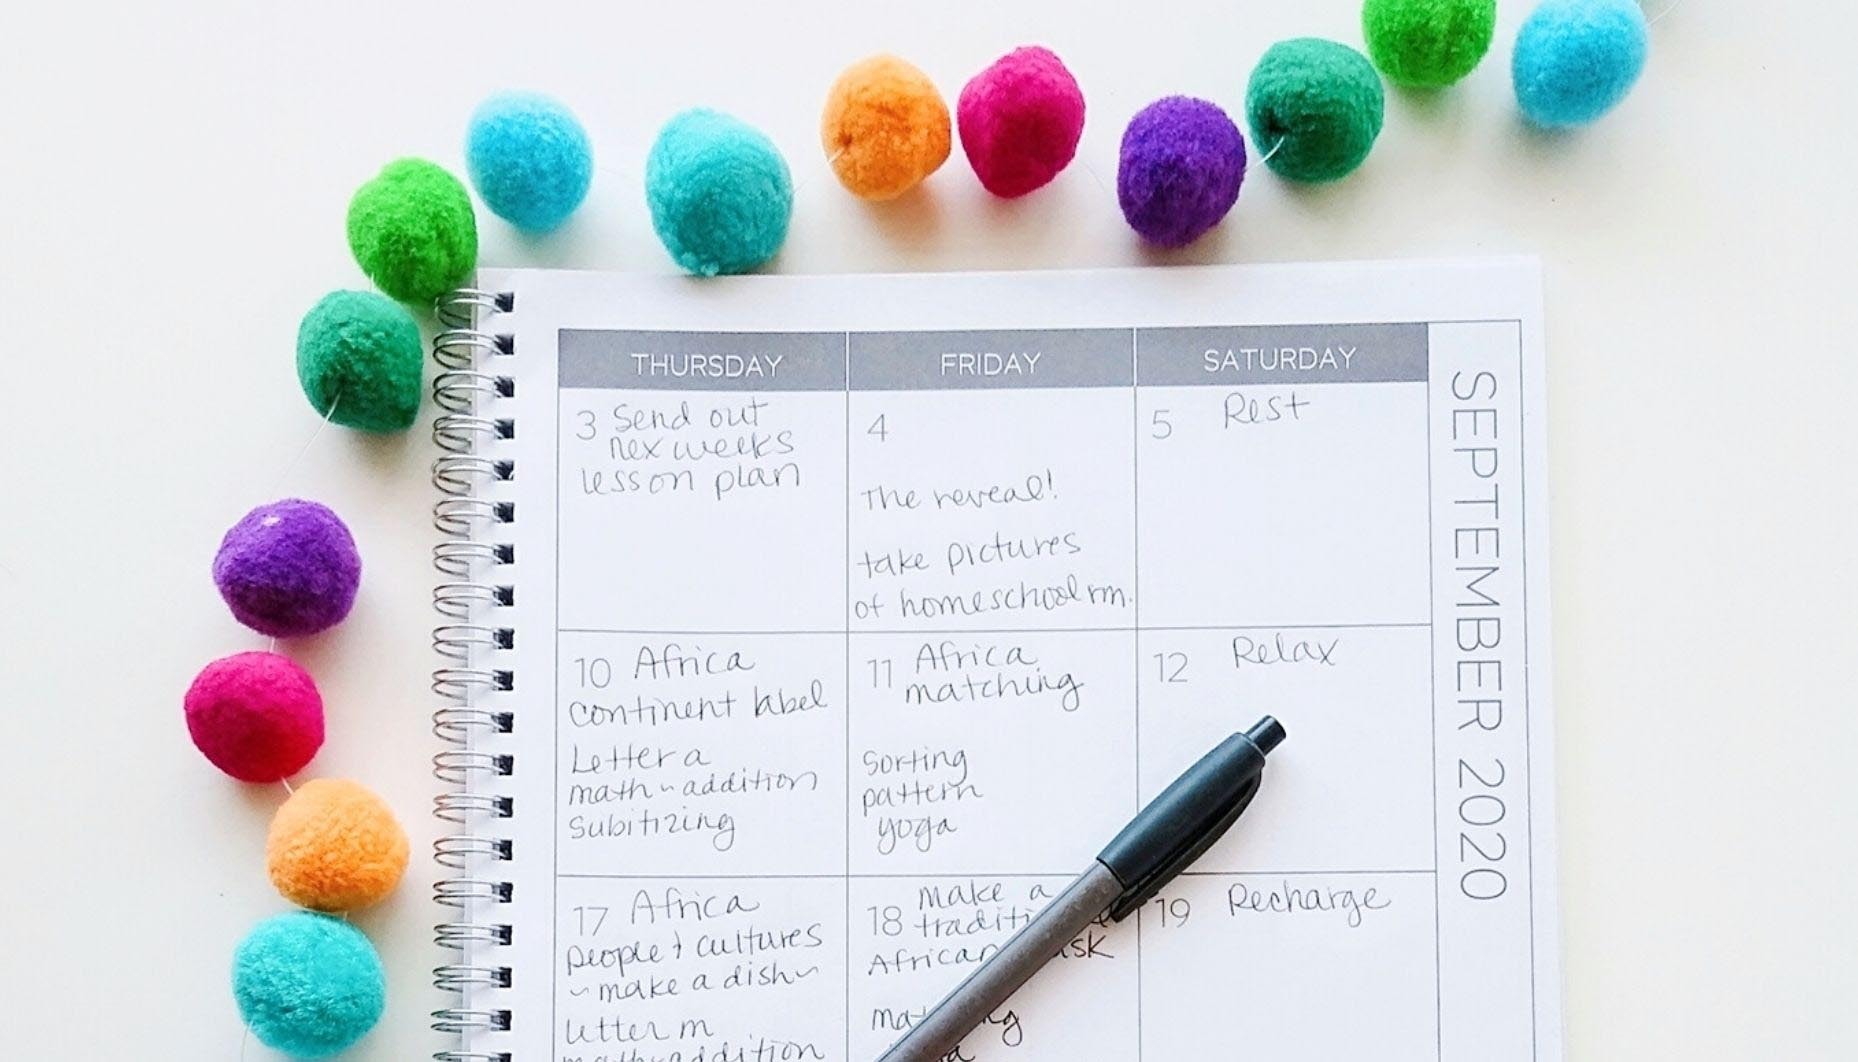 THURSDAY
FRIDAY
SATURDAY
SEPTEMBER 2020
3 Send out
nex weeks
lesson plan
4
The reveal!
take pictures
of homeschool rm.
5 Rest
10 Africa
continent label
Letter a
math ~ addition
subitizing
11 Africa
matching
Sorting
pattern
yoga
12 Relax
17 Africa
people + cultures
~ make a dish ~
letter m
math addition
18 make a
African
19 Recharge